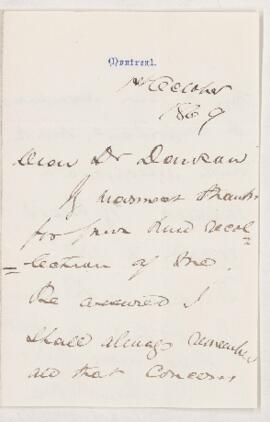 Montreal.
1st October
1869
Dear Dr Dawson
My warmest thanks
for your kind recol
=lection of me.
Be assured I
shall always remember
all that concerns